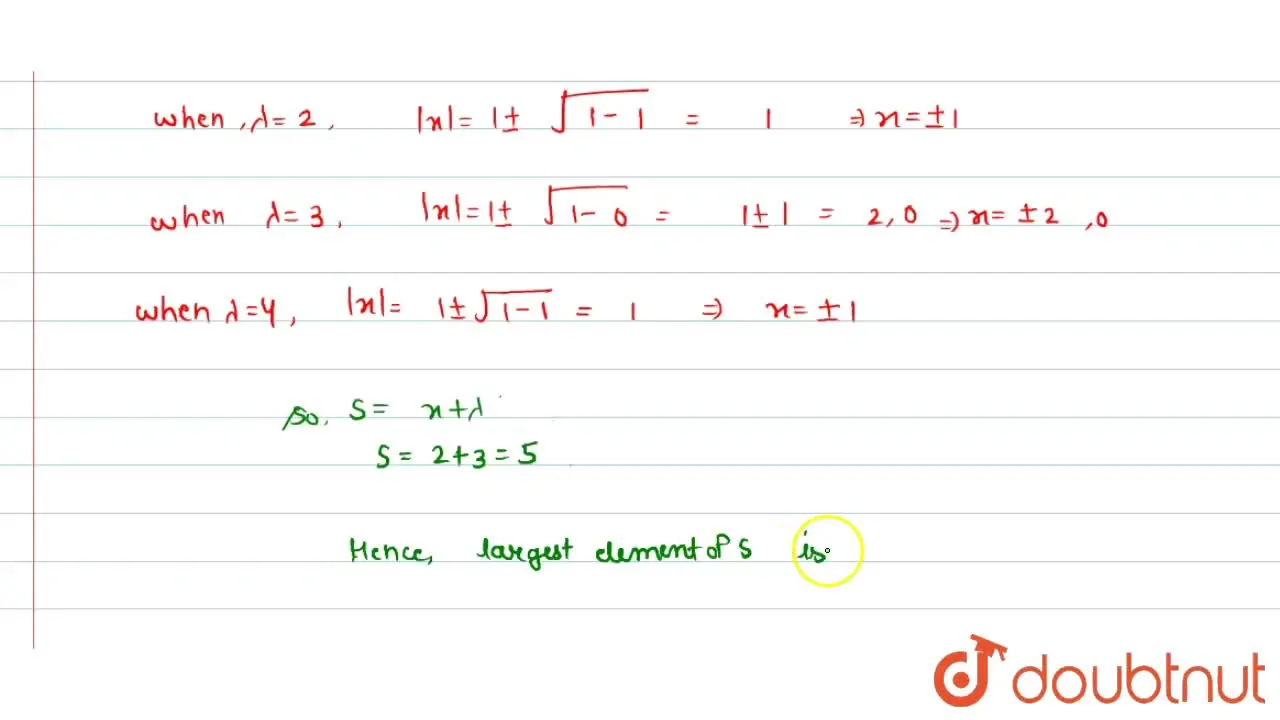 when, λ=2, |x|= 1± √1-1 = 1 ⇒ x=±1
when λ=3, |x|=1± √1-0 = 1±1 = 2,0 ⇒ x= ±2 ,0
when λ=4, |x|= 1±√1-1 = 1 ⇒ x=±1
so, S= x+λ
S= 2+3=5
Hence, largest element of S is
doubtnut